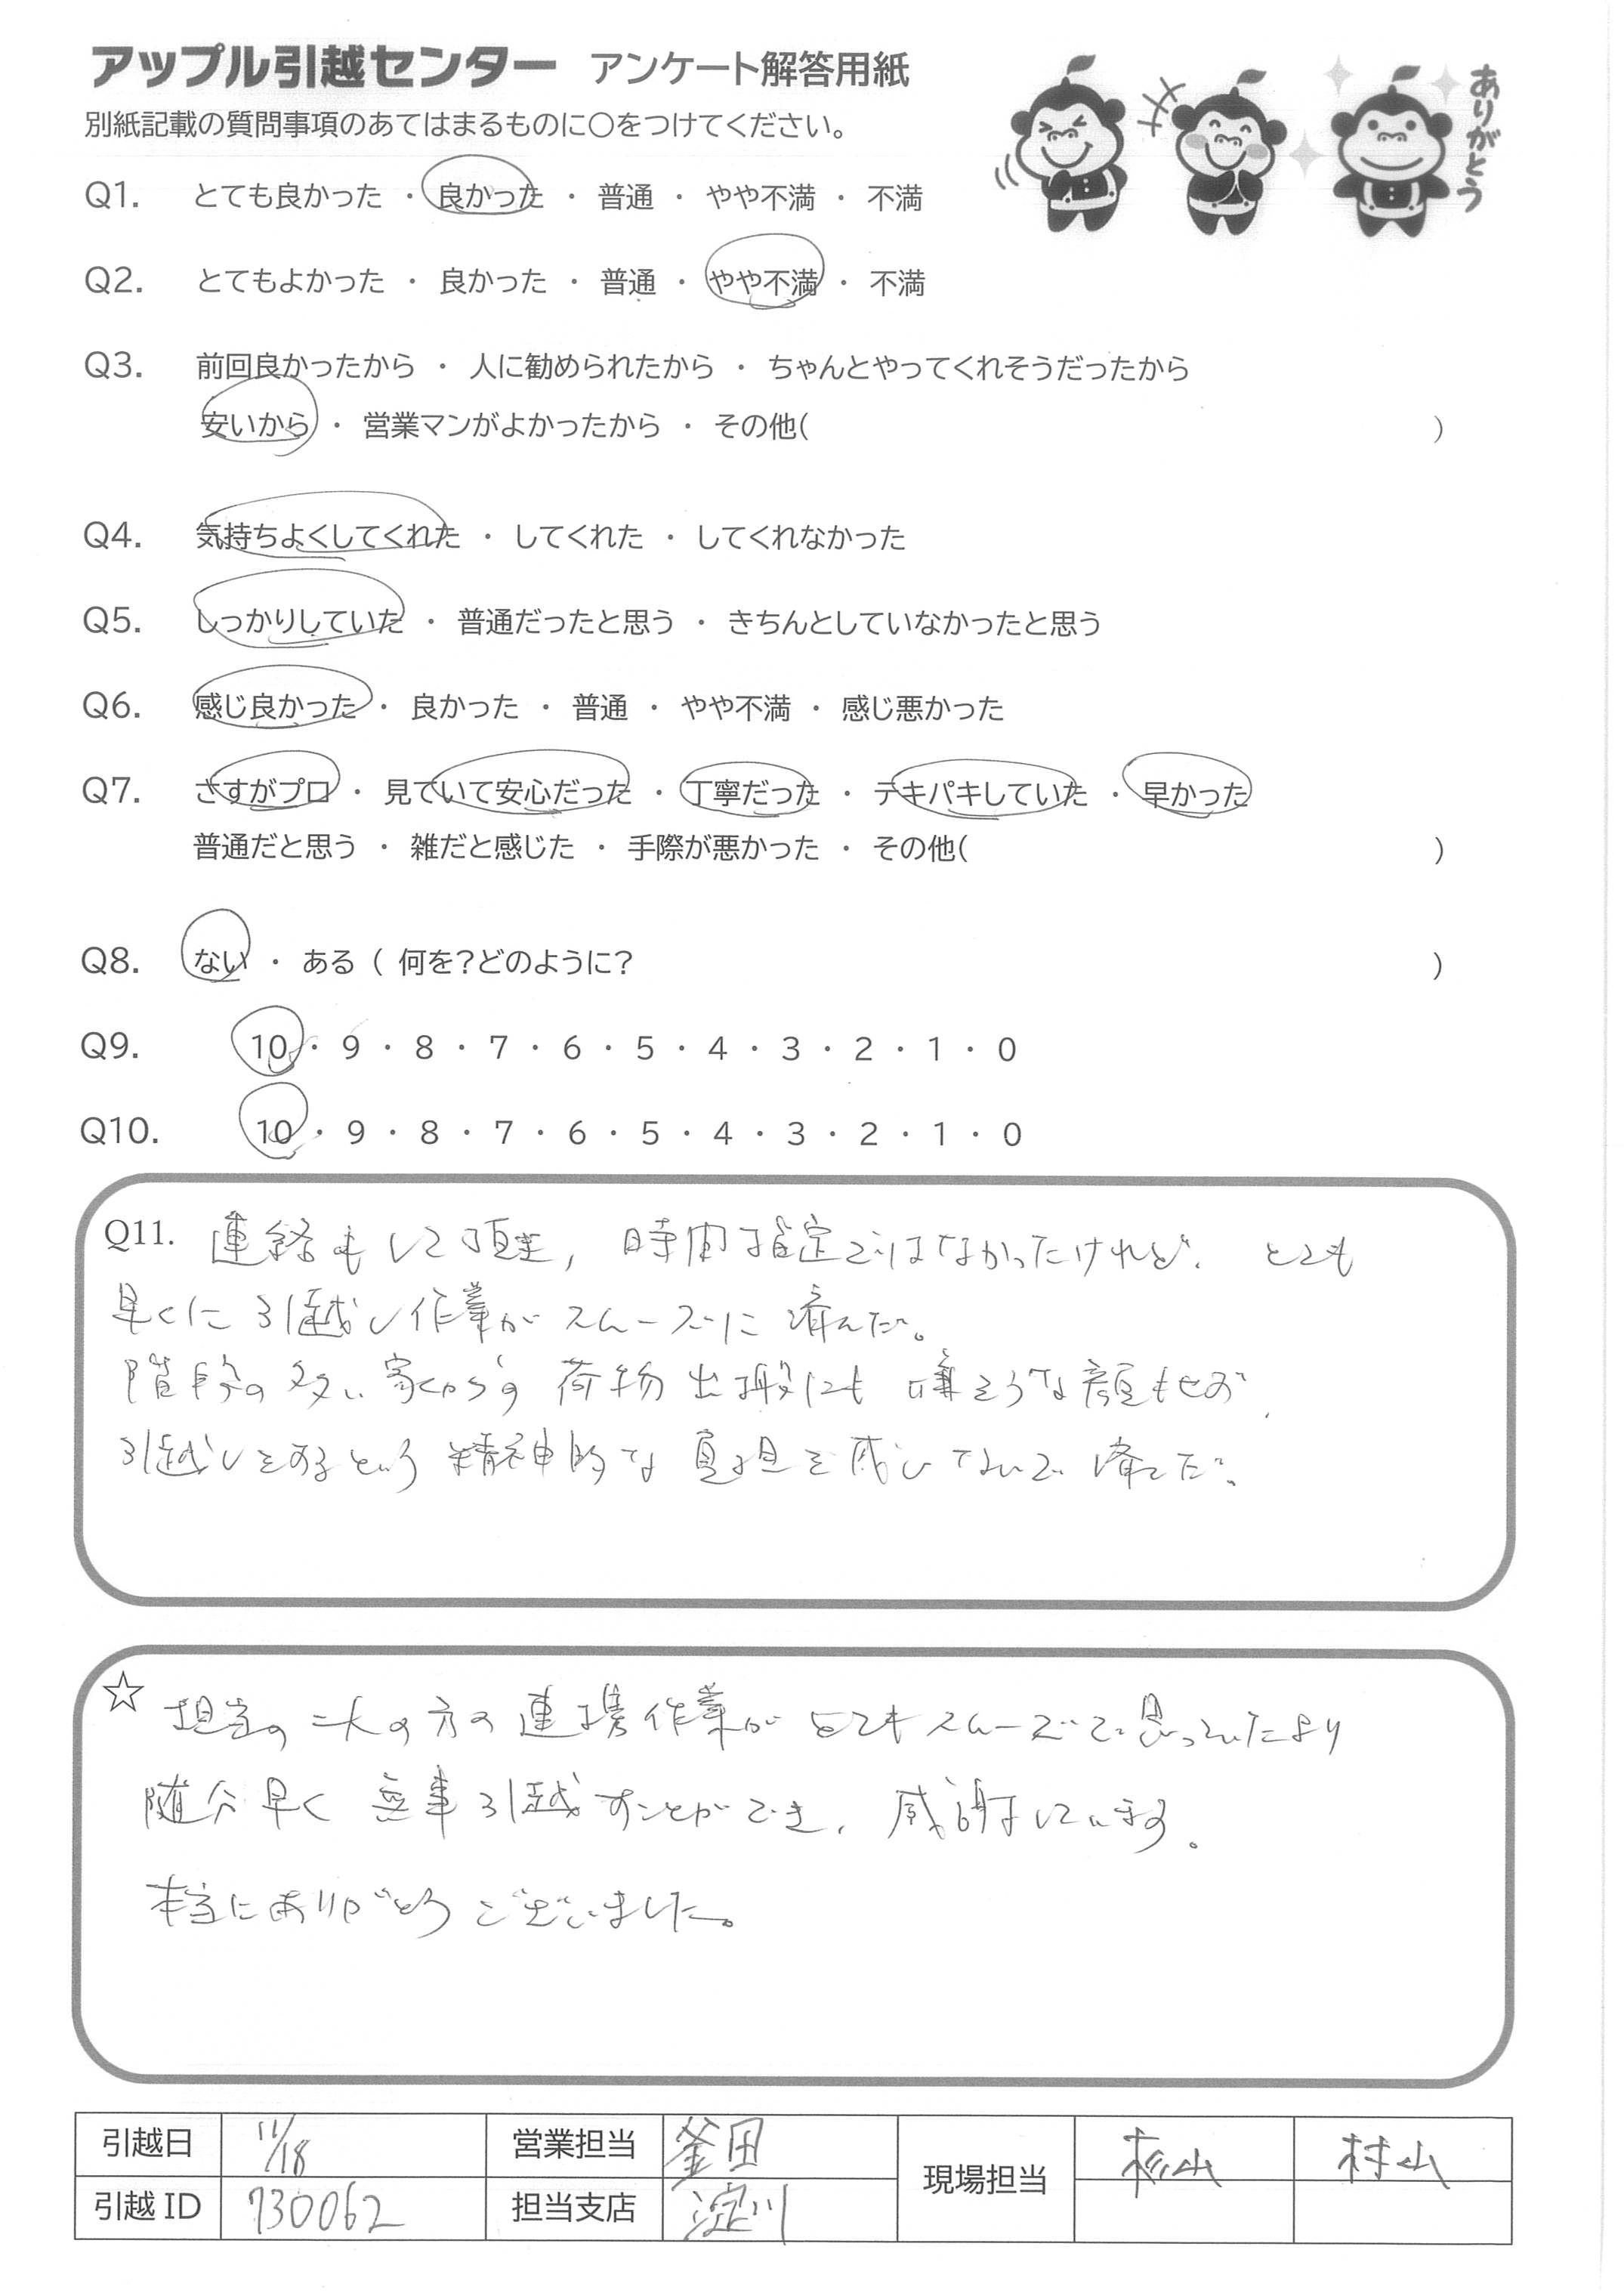 アップル引越センター アンケート解答用紙
ありがとう
別紙記載の質問事項のあてはまるものに○をつけてください。
Q1. とても良かった ・ 良かった ・ 普通 ・ やや不満 ・ 不満
Q2. とてもよかった ・ 良かった ・ 普通 ・ やや不満 ・ 不満
Q3. 前回良かったから ・ 人に勧められたから ・ ちゃんとやってくれそうだったから
安いから ・ 営業マンがよかったから ・ その他( )
Q4. 気持ちよくしてくれた ・ してくれた ・ してくれなかった
Q5. しっかりしていた ・ 普通だったと思う ・ きちんとしていなかったと思う
Q6. 感じ良かった ・ 良かった ・ 普通 ・ やや不満 ・ 感じ悪かった
Q7. さすがプロ ・ 見ていて安心だった ・ 丁寧だった ・ テキパキしていた ・ 早かった
普通だと思う ・ 雑だと感じた ・ 手際が悪かった ・ その他( )
Q8. ない ・ ある ( 何を?どのように? )
Q9. 10 ・ 9 ・ 8 ・ 7 ・ 6 ・ 5 ・ 4 ・ 3 ・ 2 ・ 1 ・ 0
Q10. 10 ・ 9 ・ 8 ・ 7 ・ 6 ・ 5 ・ 4 ・ 3 ・ 2 ・ 1 ・ 0
Q11. 連絡もして頂き, 時間指定ではなかったけれど、とても
早くに引越し作業がスムーズに済んだ。
階段の多い家からの荷物出搬にも嫌そうな顔もせず、
引越しをするという精神的な負担を感じないで済んだ。
☆ 担当の二人の方の連携作業がとてもスムーズで思っていたより
随分早く無事引越すことができ、感謝しています。
本当にありがとうございました。
引越日 11/18 営業担当 釜田 現場担当 杉山 村山
引越ID 730062 担当支店 淀川